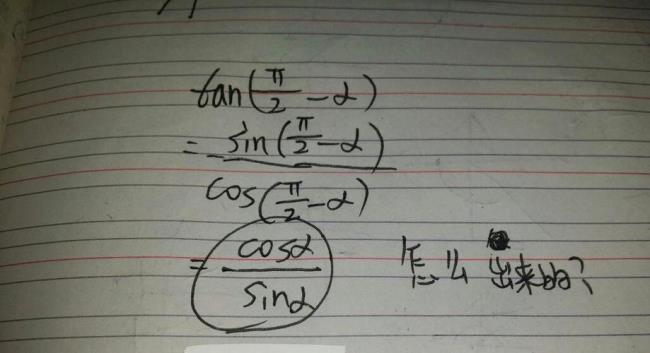 tan(π/2-α)
=sin(π/2-α)
cos(π/2-α)
=cosα
sinα
怎么出来的?